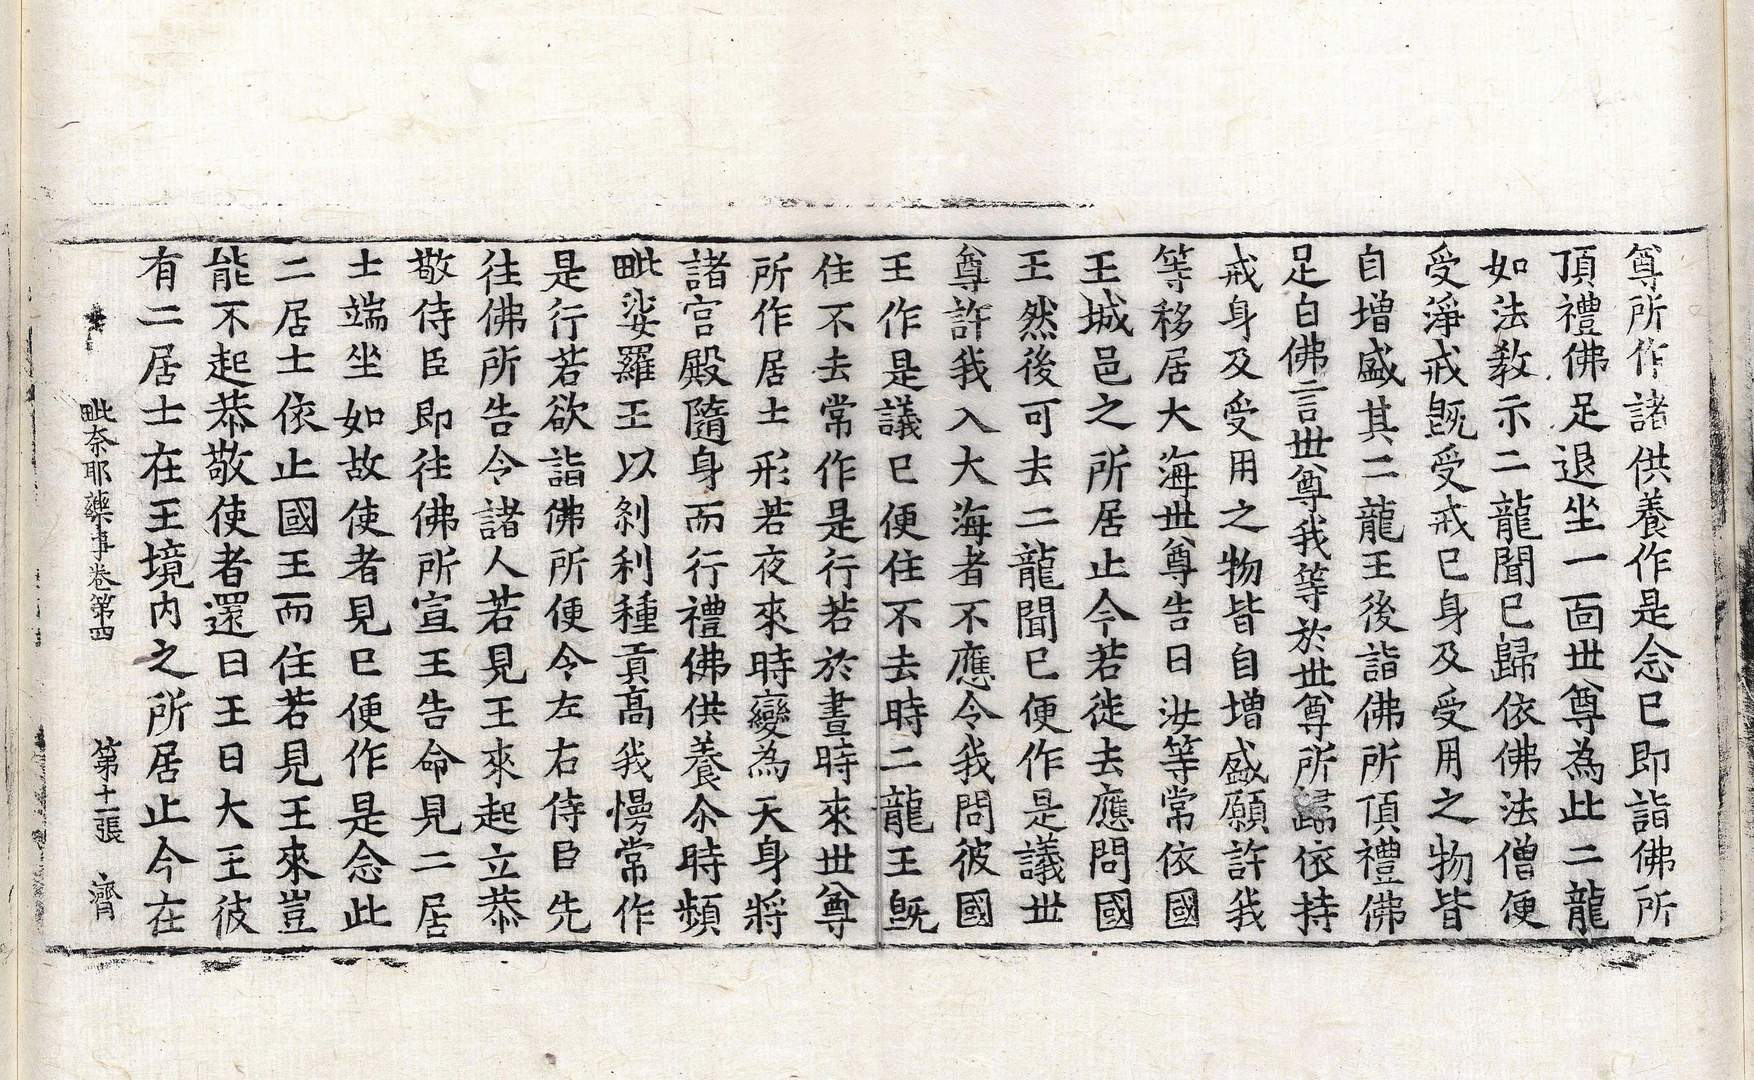 尊所作諸供養作是念已即詣佛所
頂禮佛足退坐一面世尊為此二龍
如法教示二龍聞已歸依佛法僧便
受淨戒旣受戒已身及受用之物皆
自增盛其二龍王後詣佛所頂禮佛
足白佛言世尊我等於世尊所歸依持
戒身及受用之物皆自增盛願許我
等移居大海世尊告曰汝等常依國
王城邑之所居止今若徙去應問國
王然後可去二龍聞已便作是議世
尊許我入大海者不應令我問彼國
王作是議已便住不去時二龍王旣
住不去常作是行若於晝時來世尊
所作居士形若夜來時變為天身將
諸宮殿隨身而行禮佛供養尒時頻
毗娑羅王以刹利種貢高我慢常作
是行若欲詣佛所便令左右侍臣先
往佛所告令諸人若見王來起立恭
敬侍臣即往佛所宣王告命見二居
士端坐如故使者見已便作是念此
二居士依止國王而住若見王來豈
能不起恭敬使者還曰王曰大王彼
有二居士在王境內之所居止今在
毗奈耶藥事卷第四　第十一張　濟